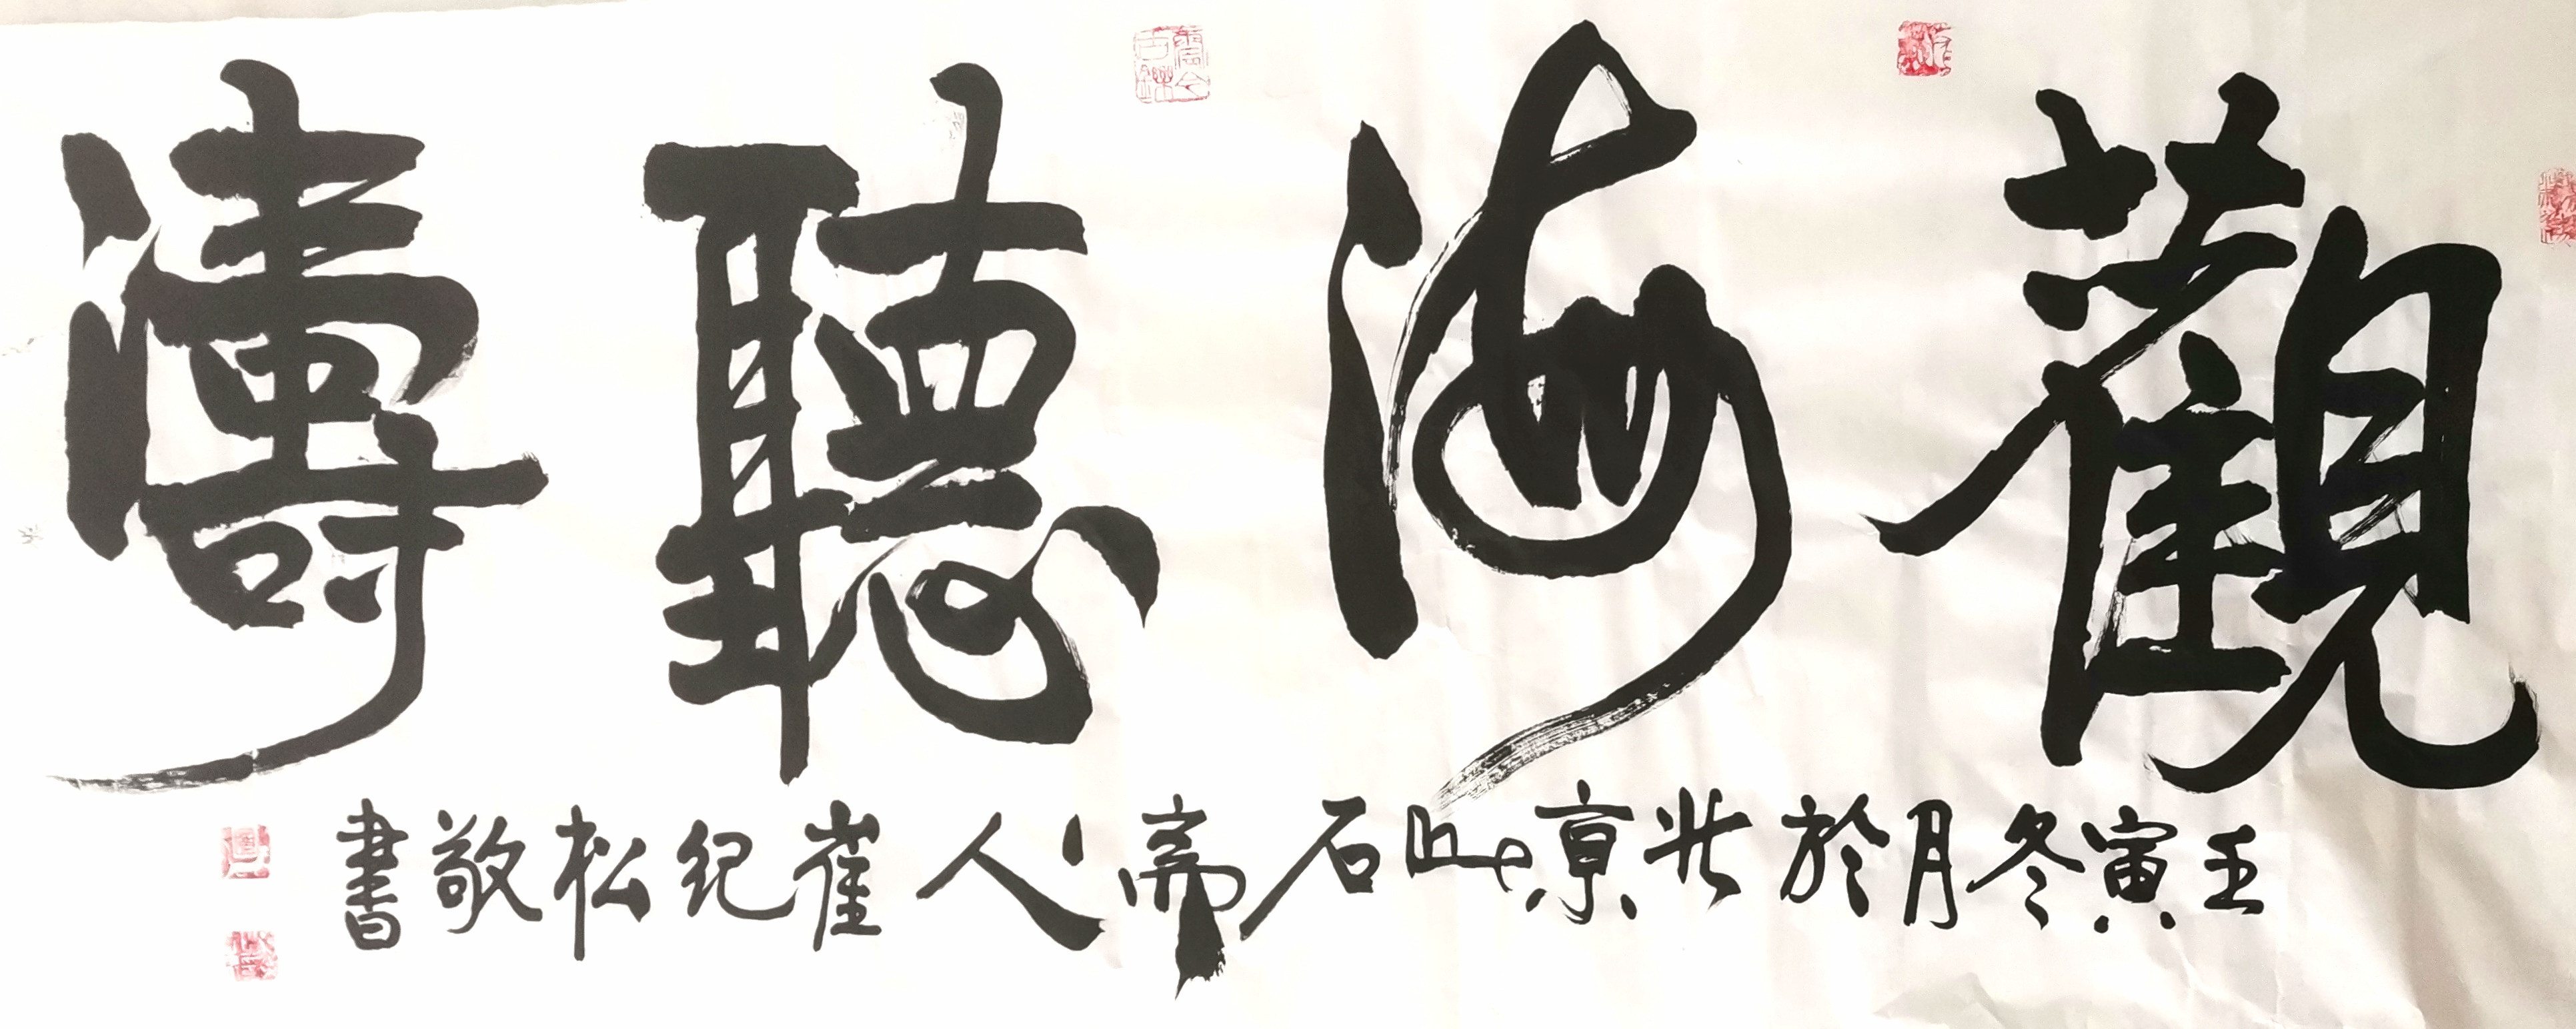 觀海聽濤
壬寅冬月於北京 石 人崔紀松敬書